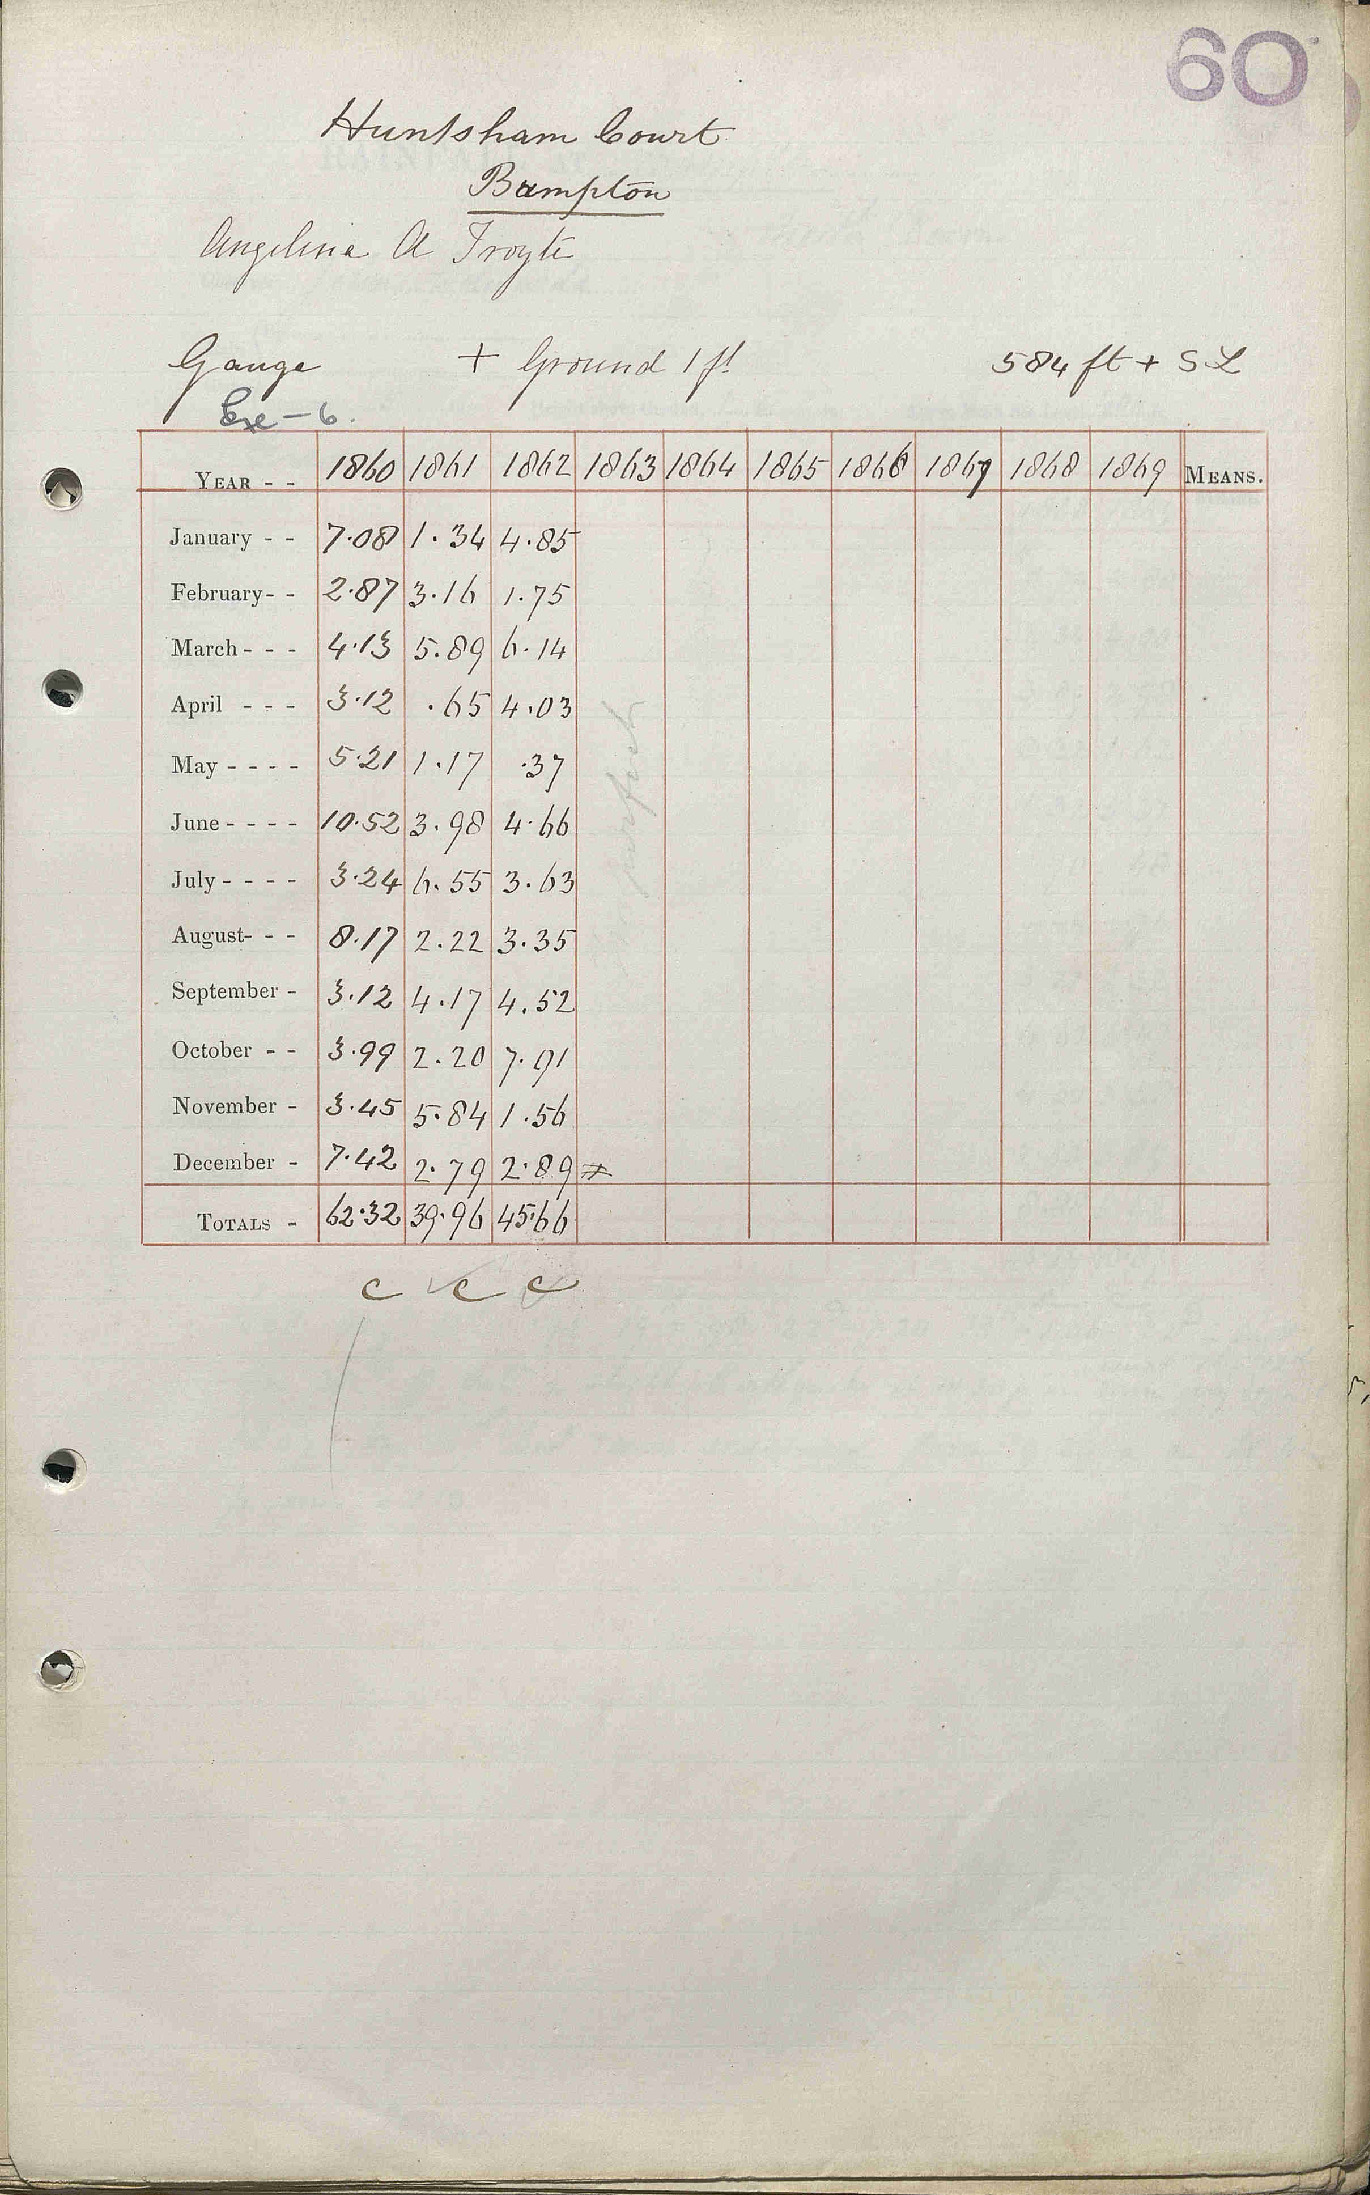 60
Huntsham Court
Bampton
Angelina A Troyte
Gauge + Ground 1 ft 584 ft + S L
Exe - 6.
YEAR - - 1860 1861 1862 1863 1864 1865 1866 1867 1868 1869 MEANS.
January - - 7.08 1.34 4.85
February - - 2.87 3.16 1.75
March - - - 4.13 5.89 6.14
April - - - 3.12 .65 4.03
May - - - - 5.21 1.17 .37
June - - - - 10.52 3.98 4.66
July - - - - 3.24 6.55 3.63
August - - - 8.17 2.22 3.35
September - 3.12 4.17 4.52
October - - 3.99 2.20 7.91
November - 3.45 5.84 1.56
December - 7.42 2.79 2.89
TOTALS - 62.32 39.96 45.66
c c c